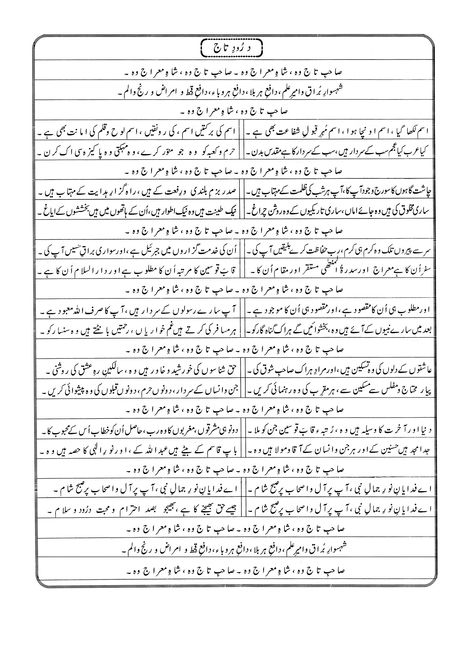 درُودِ تاج
صاحبِ تاج وہ، شاہِ معراج وہ ۔ صاحبِ تاج وہ، شاہِ معراج وہ ۔
شہسوارِ بُراق وامیرِ علم، دافعِ ہر بلا، دافعِ ہر وباء، دافعِ قحط و امراض و رنج والم ۔
صاحبِ تاج وہ، شاہِ معراج وہ ۔
اسم لکھا گیا، اسم اونچا ہوا، اسم مُہرِ قبولِ شفاعت بھی ہے ۔ اسم کی برکتیں اسم، کی رونقیں، اسم لوح وقلم کی امانت بھی ہے ۔
کیا عرب کیا عجم سب کے سردار ہیں، سب کے سردار کا ہے مقدس بدن۔ حرم و کعبہ کو وہ جو منوّر کرے، وہ مہکتی وہ پاکیزہ سی اک کرن ۔
صاحبِ تاج وہ، شاہِ معراج وہ ۔
چاشت گاہوں کا سورج وجود آپ کا، آپ ہر شب کی ظلمت کے مہتاب ہیں۔ صدرِ بزمِ بلندی و رفعت کے ہیں، راہ گزارِ ہدایت کے مہتاب ہیں ۔
ساری مخلوق کی ہیں وہ جائے اماں، ساری تاریکیوں کے وہ روشن چراغ ۔ نیک طینت ہیں وہ نیک اطوار ہیں، اُن کے ہاتھوں میں ہیں بخششوں کے ایاغ ۔
صاحبِ تاج وہ، شاہِ معراج وہ ۔
سر سے پیروں تلک وہ کرم ہی کرم، رب حفاظت کرے ہیں آپ کی ۔ اُن کی خدمت گزاروں میں جبرئیل ہے، اور سواری براق حسیں آپ کی ۔
سفر اُن کا ہے معراج اور سدرۃُ المنتھٰی مستقر اور مقام اُن کا ۔ قابَ قوسین کا مرتبہ اُن کا مطلوب ہے اور دار السلام اُن کا ہے ۔
صاحبِ تاج وہ، شاہِ معراج وہ ۔
اور مطلوب ہی اُن کا مقصود ہے، اور مقصود ہی اُن کا موجود ہے ۔ آپ سارے رسولوں کے سردار ہیں، آپ کا صرف اللہ معبود ہے ۔
بعد میں سارے نبیوں کے آئے ہیں وہ، بخشوائیں گے ہر اک گناہ گار کو ۔ ہر مسافر کی کرتے ہیں غم خواریاں، رحمتیں بانٹتے ہیں وہ سنسار کو ۔
صاحبِ تاج وہ، شاہِ معراج وہ ۔
عاشقوں کے دلوں کی وہ تسکین ہیں، اور مراد ہر اک صاحبِ شوق کی ۔ حق شناسوں کی خورشید و خاور ہیں وہ، سالکینِ رہِ عشق کی روشنی ۔
پیار محتاج و مفلس سے مسکین سے، ہر مقرب کی وہ رہنمائی کریں ۔ جن و انساں کے سردار، دونوں حرم، دونوں قبلوں کی وہ پیشوائی کریں ۔
صاحبِ تاج وہ، شاہِ معراج وہ ۔
دنیا اور آخرت کا وسیلہ ہیں وہ، رُتبہ قابَ قوسین جن کو ملا ۔ دونوں ہی مشرقوں، مغربوں کا وہ رب، حاصل اُن کو خطاب اُس کے محبوب کا ۔
جدِ امجد ہیں حسنین کے اور ہر جن و انساں کے آقا و مولا ہیں وہ ۔ باپ قاسم کے بیٹے ہیں عبد اللہ کے، اور نورِ الٰہی کا حصہ ہیں وہ ۔
صاحبِ تاج وہ، شاہِ معراج وہ ۔
اے فدایانِ نورِ جمالِ نبی، آپ پر آل و اصحاب پر صبح شام ۔ اے فدایانِ نورِ جمالِ نبی، آپ پر آل و اصحاب پر صبح شام ۔
اے فدایانِ نورِ جمالِ نبی، آپ پر آل و اصحاب پر صبح شام ۔ جیسے حق بھیجنے کا ہے، بھیجو بصد احترام و محبت درُود و سلام ۔
صاحبِ تاج وہ، شاہِ معراج وہ ۔
شہسوارِ بُراق وامیرِ علم، دافعِ ہر بلا، دافعِ ہر وباء، دافعِ قحط و امراض و رنج والم ۔
صاحبِ تاج وہ، شاہِ معراج وہ ۔ صاحبِ تاج وہ، شاہِ معراج وہ ۔